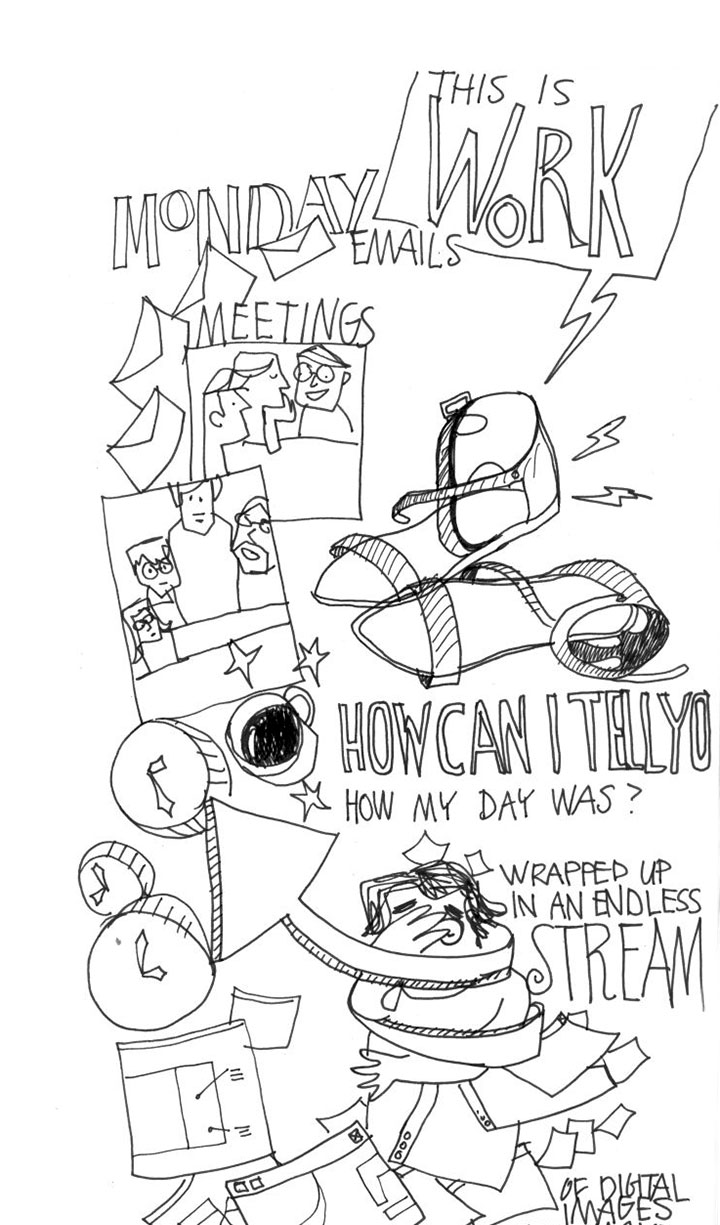 THIS IS
WORK
MONDAY
EMAILS
MEETINGS
HOW CAN I TELL YO
HOW MY DAY WAS?
WRAPPED UP
IN AN ENDLESS
STREAM
OF DIGITAL
IMAGES